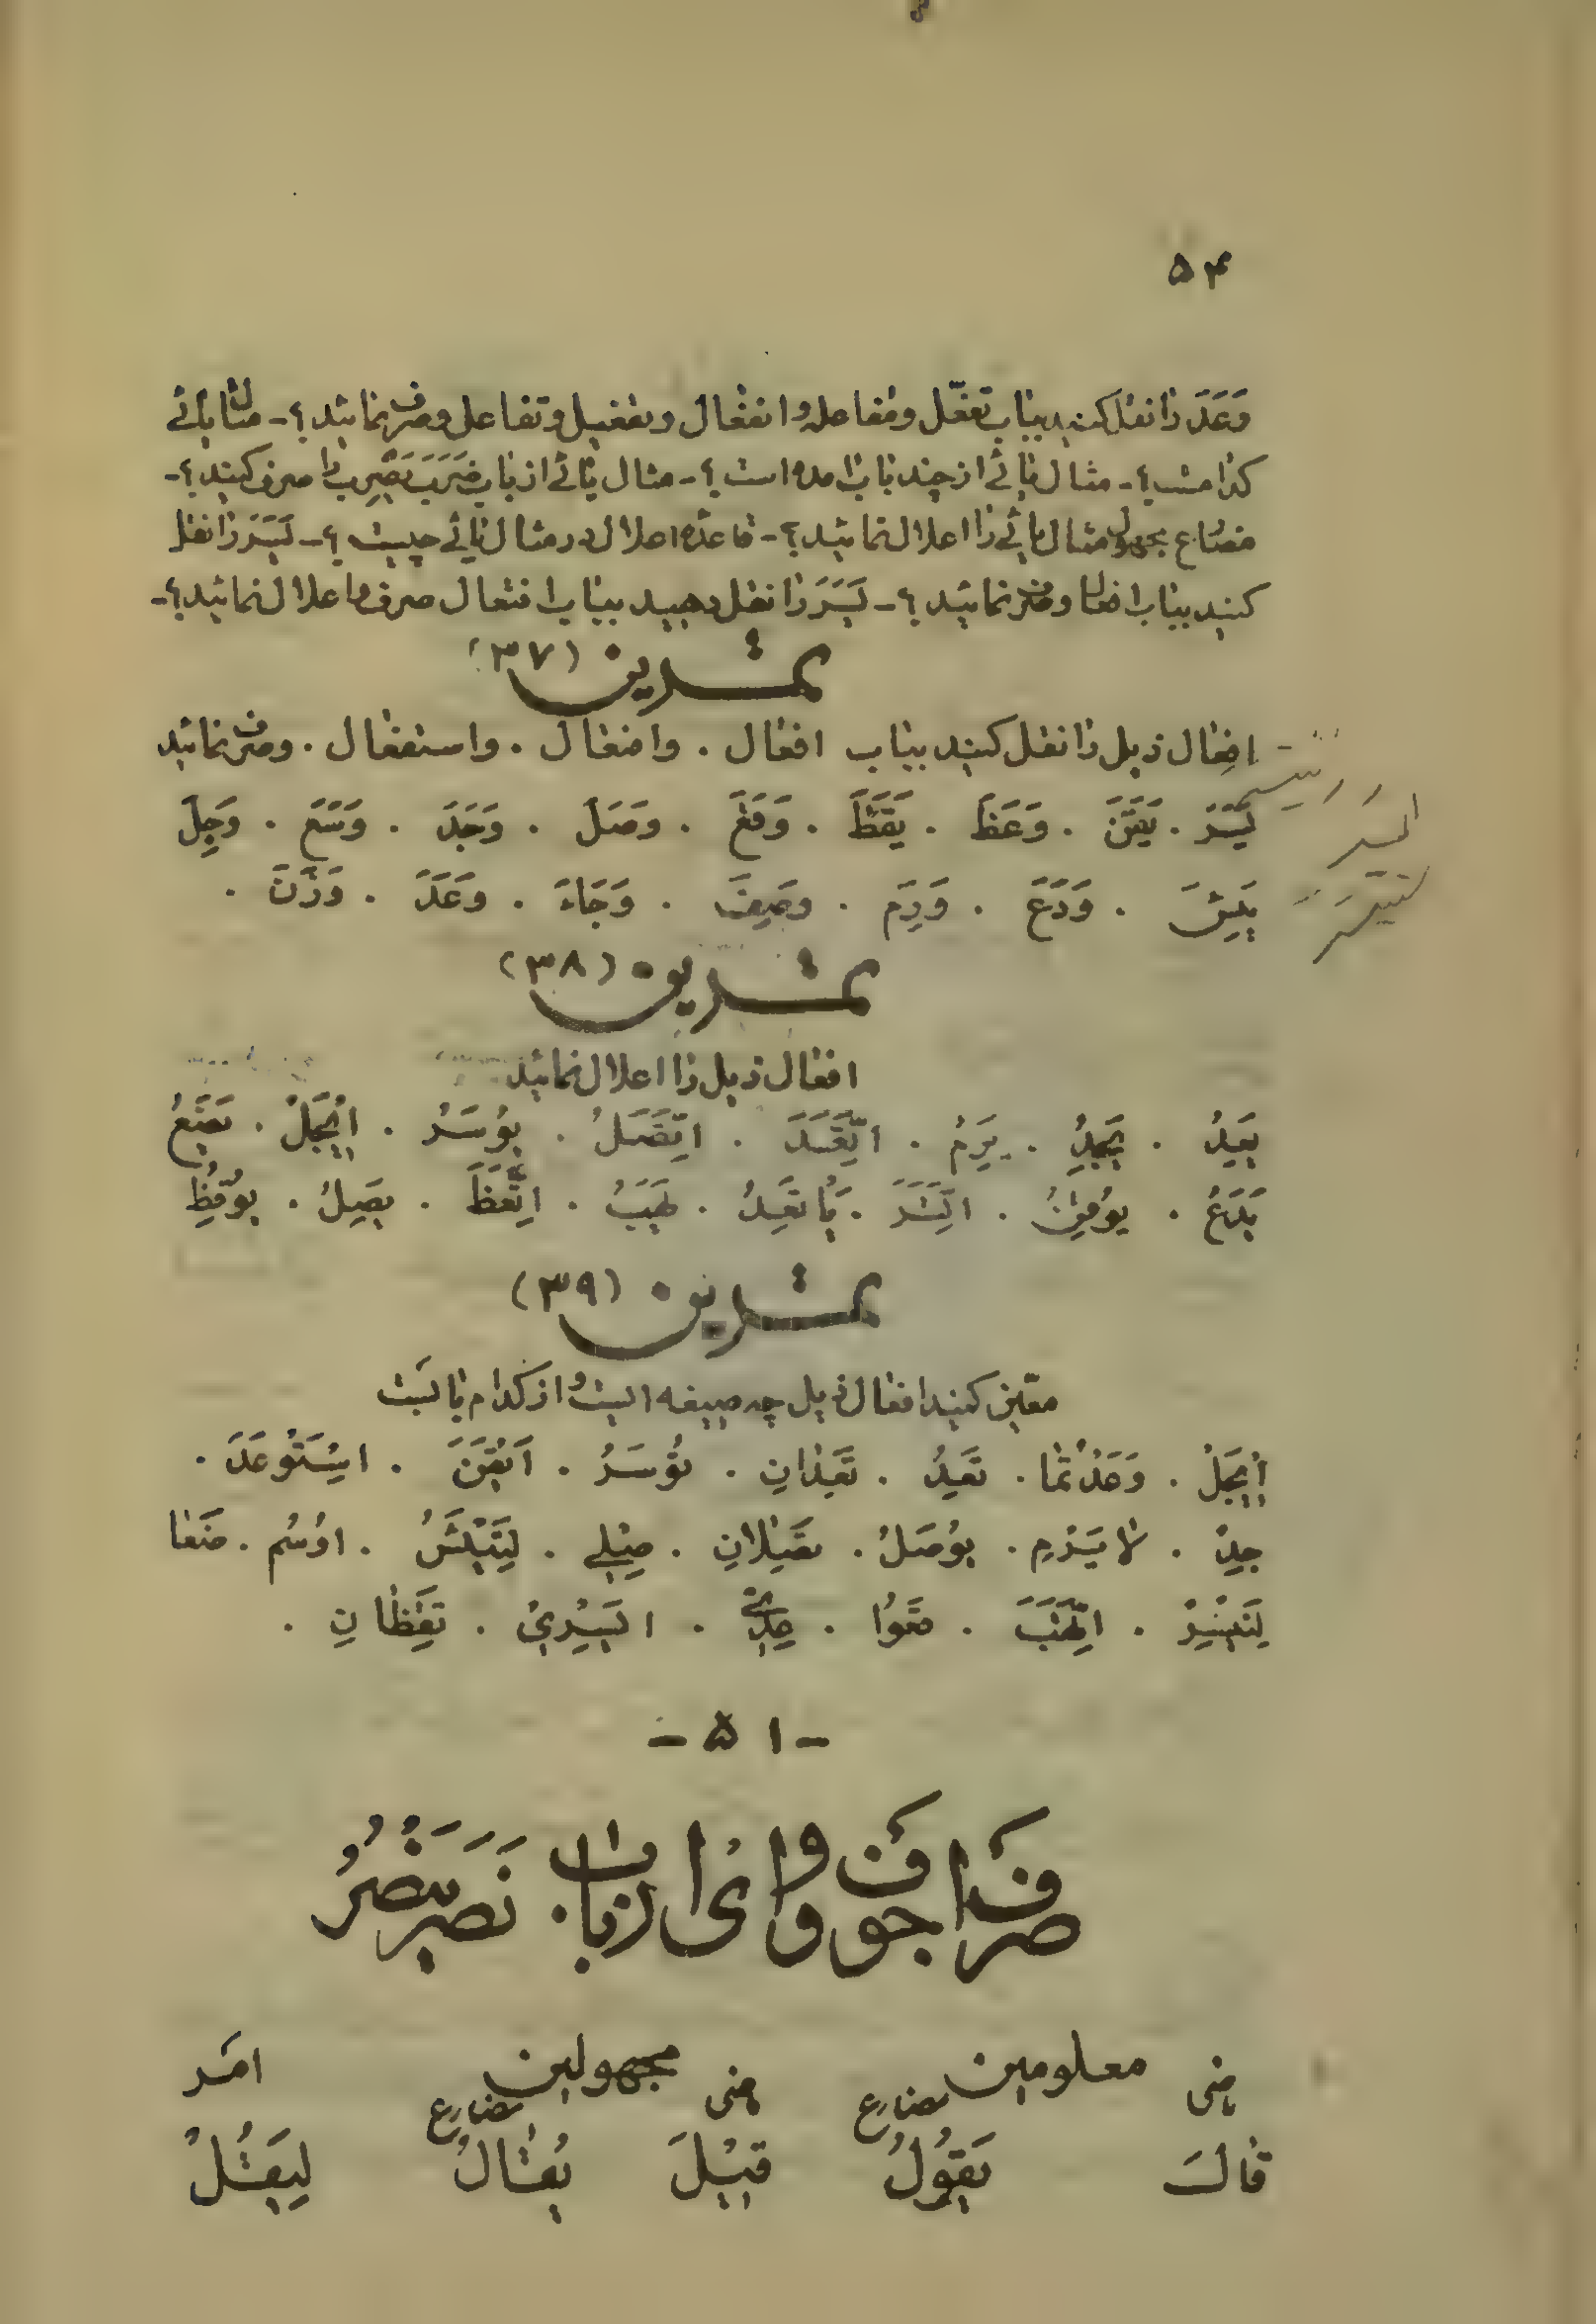 ۵۴
وَعَدَ را نقل کنید بباب تفعّل ومفاعله وانفعال وتفعیل وتفاعل وصرف نمائید؟ - مثال یائی
کدامست؟ - مثال یائی از چند باب آمده است؟ - مثال یائی از باب ضَرَبَ یَضْرِبُ را صرف کنید؟ -
مضارع مجهول مثال یائی را اعلال نمائید؟ - قاعدهٔ اعلال در مثال یائی چیست؟ - یَسَرَ را نقل
کنید بباب افعال وصرف نمائید؟ - یَسَرَ را نقل دهید بباب افتعال صرف واعلال نمائید؟ -
تمرین (۳۷)
افعال ذیل را نقل کنید بباب افعال . وافتعال . واستفعال . وصرف نمائید
یَسَرَ . یَقَنَ . وَعَظَ . یَقَظَ . وَقَعَ . وَصَلَ . وَجَدَ . وَسَعَ . وَجِلَ
یَبِسَ . وَدَعَ . وَرِمَ . وَصَفَ . وَجَاءَ . وَعَدَ . وَزَنَ .
تمرین (۳۸)
افعال ذیل را اعلال نمائید
یَعِدُ . یَجِدُ . یَرِمُ . اتَّقَدَ . اتَّصَلَ . یُوسَرُ . اِیْجَلْ . تَضَعُ
یَدَعُ . یُوقِنُ . اتَّسَرَ . یَاتَعِدُ . یَهَبُ . اتَّعَظَ . یَصِلُ . یُوقِظُ
تمرین (۳۹)
معیّن کنید افعال ذیل چه صیغه است واز کدام بابست
اِیْجَلْ . وَعَدْتُمَا . تَعِدُ . تَعِدَانِ . تُوسَرُ . اَیْقَنَ . اسْتَوْعَدَ .
جِدْ . لا یَرِمْ . یُوصَلُ . تَصِلَانِ . صِلِی . اوْسُم . ضَعَا
قَعُوا . تَقِظَانِ .
- ۵۱ -
صرف اجوف واوی از باب نَصَرَ یَنْصُرُ
معلومین مجهولین امر
ماضی مضارع ماضی مضارع
قَالَ یَقُولُ قِیْلَ یُقَالُ لِیَقُلْ